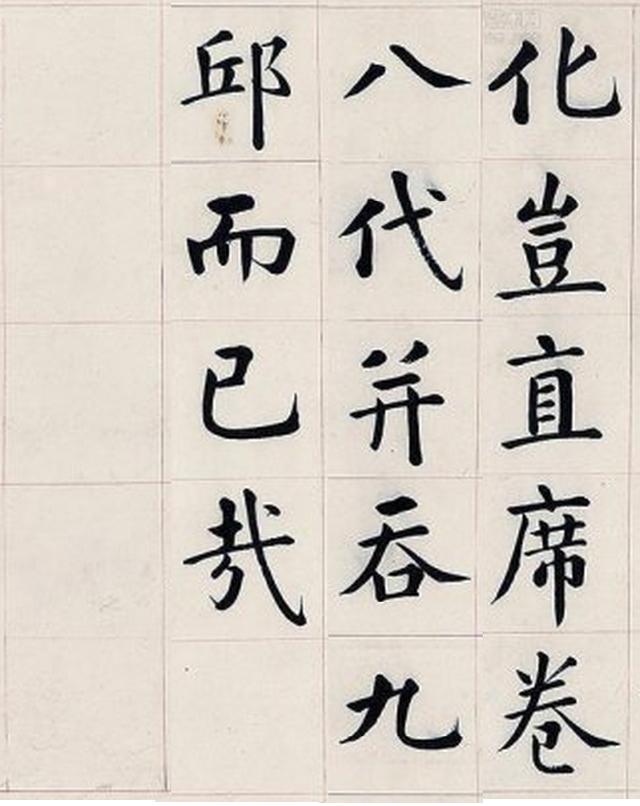 化豈直席卷
八代并吞九
邱而已哉